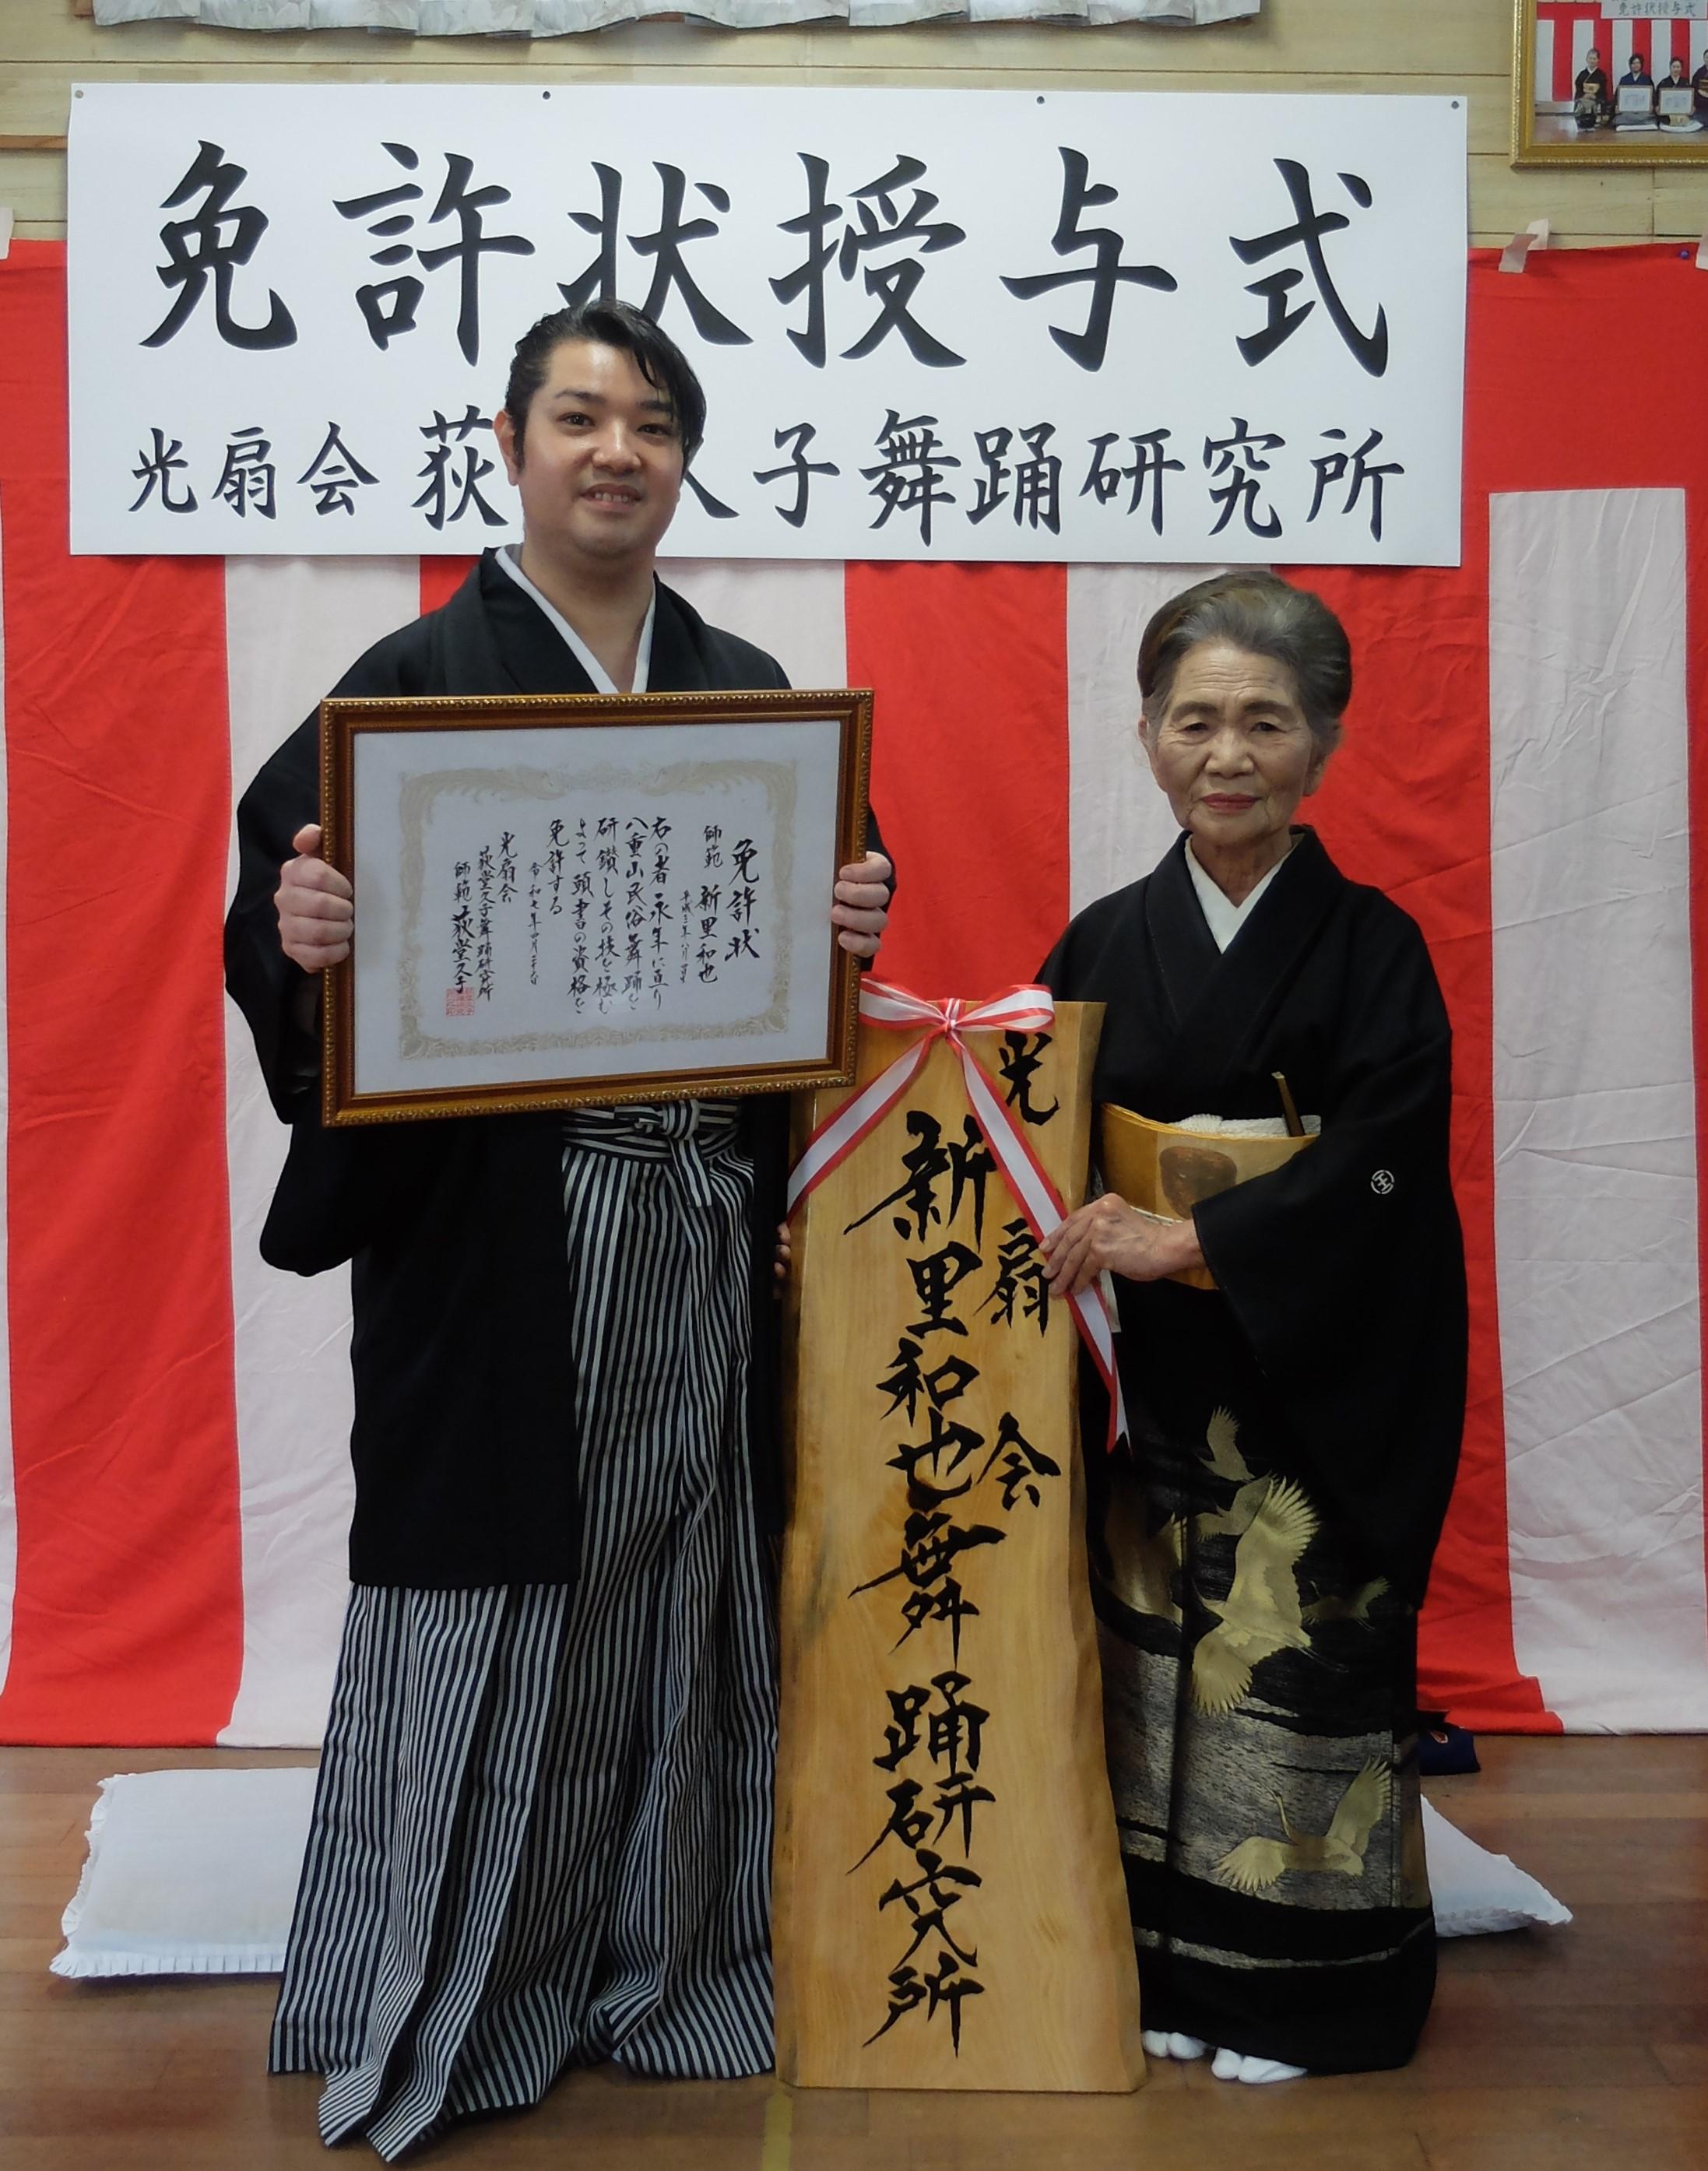 免許状授与式
光扇会 荻 久子舞踊研究所
免許状授与式
免許状
師範 新里和也
右の者 永年に亘り
八重山民俗舞踊を
研鑚しその技を極む
よって頭書の資格を
免許する
光扇会
荻堂久子舞踊研究所
師範 荻堂久子
光扇会
新里和也舞踊研究所